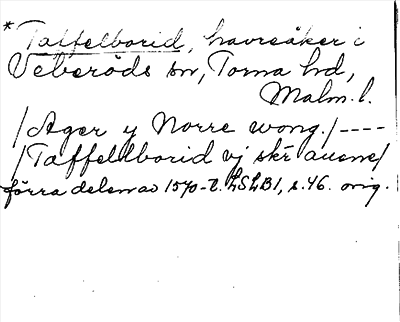 * Taffelborid, havreåker i
Veberöds sn, Torna hd,
Malm. l.
/Ager y Norre wong./----
/Taffellborid vj skr auene/
förra delen av 1570-t. LSLB1, s. 46. orig.